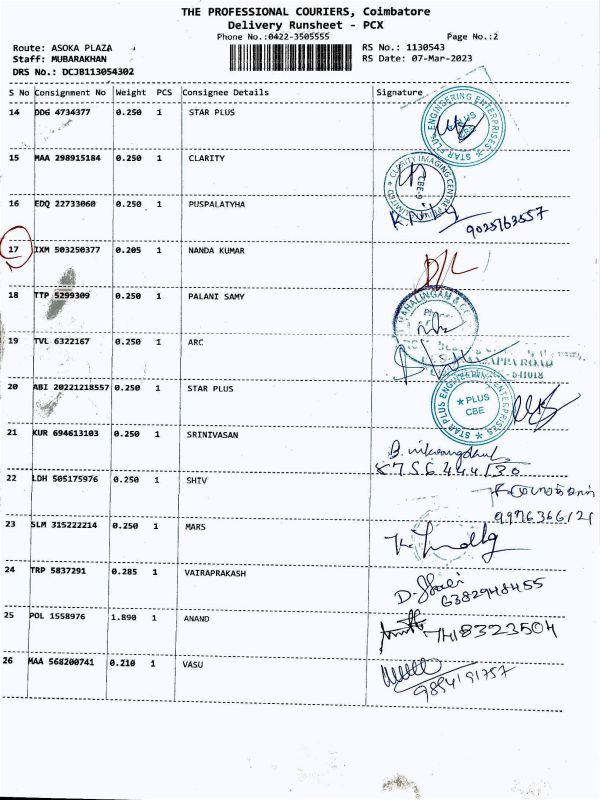 THE PROFESSIONAL COURIERS, Coimbatore
Delivery Runsheet - PCX
Phone No.:0422-3505555 Page No.:2
Route: ASOKA PLAZA RS No.: 1130543
Staff: MUBARAKHAN RS Date: 07-Mar-2023
DRS No.: DCJB113054302
S No Consignment No Weight PCS Consignee Details Signature
14 DDG 4734377 0.250 1 STAR PLUS
STAR PLUS ENGINEERING ENTERPRISES ★ PLUS CBE ★
15 MAA 298915184 0.250 1 CLARITY
CLARITY IMAGING CENTRE LIMITED CBE-9
16 EDQ 22733060 0.250 1 PUSPALATYHA
9025763557
17 IXM 503250377 0.205 1 NANDA KUMAR
D/L
18 TTP 5299309 0.250 1 PALANI SAMY
MAHALINGAM & CO
19 TVL 6322167 0.250 1 ARC
ROAD
- 641018
20 ABI 20221218557 0.250 1 STAR PLUS
STAR PLUS ENGINEERING ENTERPRISES ★ PLUS CBE
21 KUR 694613103 0.250 1 SRINIVASAN
8756444130
22 LDH 505175976 0.250 1 SHIV
9976366121
23 SLM 315222214 0.250 1 MARS
24 TRP 5837291 0.285 1 VAIRAPRAKASH
6382948455
25 POL 1558976 1.890 1 ANAND
7418323504
26 MAA 568200741 0.210 1 VASU
9894191757